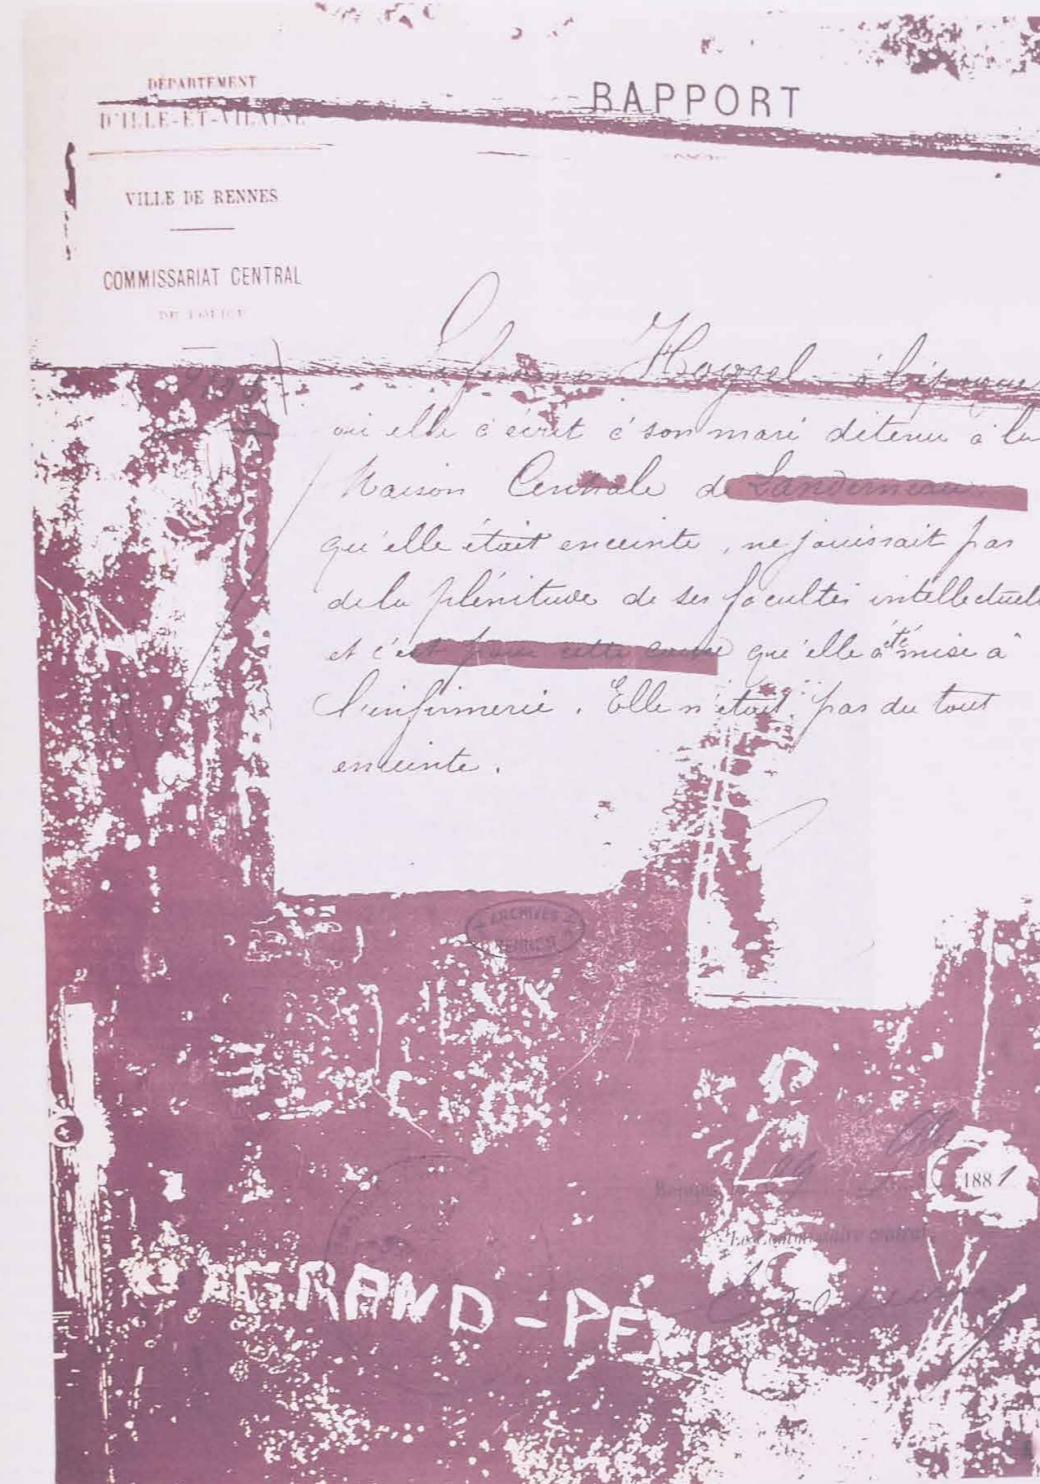 DÉPARTEMENT
D'ILLE-ET-VILAINE
RAPPORT
VILLE DE RENNES
COMMISSARIAT CENTRAL
DE POLICE
Hoysel à l'époque
où elle a écrit à son mari détenu à la
Maison Centrale de Landerneau
qu'elle était enceinte, ne jouissait pas
de la plénitude de ses facultés intellectuell
et c'est pour cette cause qu'elle a été mise à
l'infirmerie. Elle n'était pas du tout
enceinte.
ARCHIVES
RENNES
Rennes
1881
Le Commissaire central,
GRAND-PÈ